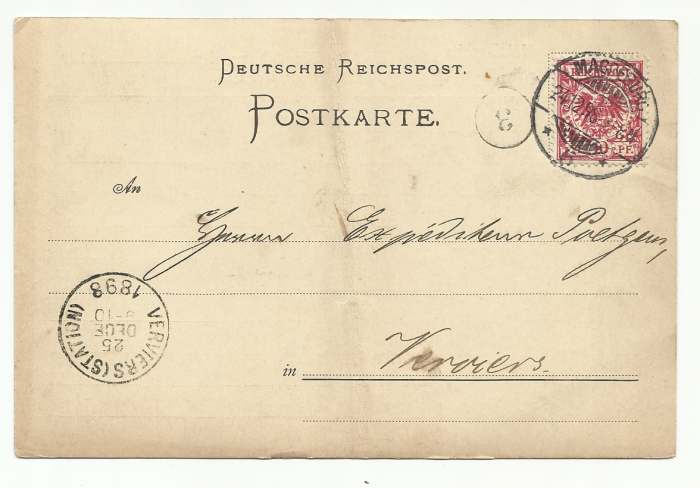 DEUTSCHE REICHSPOST.
POSTKARTE.
3
REICHSPOST
PF
An
Herrn Expéditeur Poetgens,
in Verviers.
VERVIERS (STATION)
25
DECE
9-10
1898